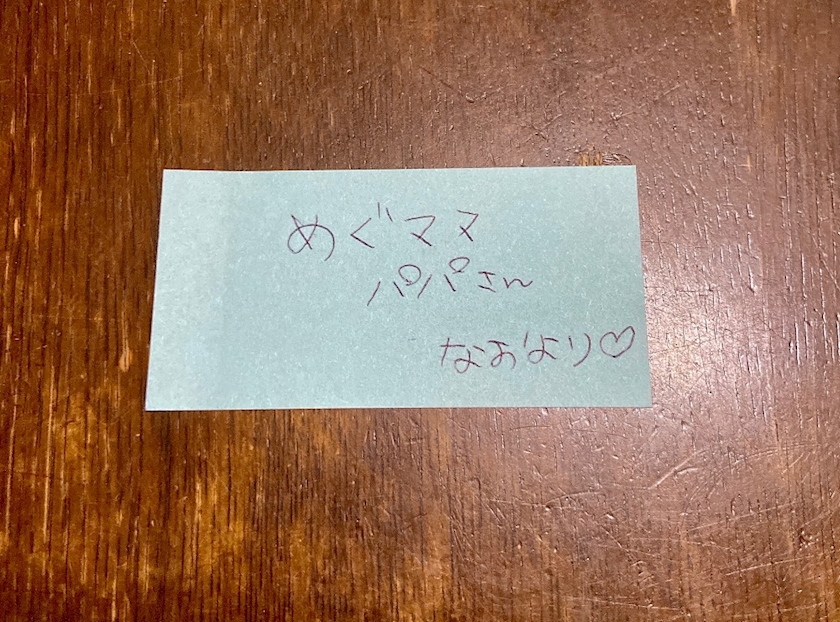 めぐママ
パパさん
なおより♡